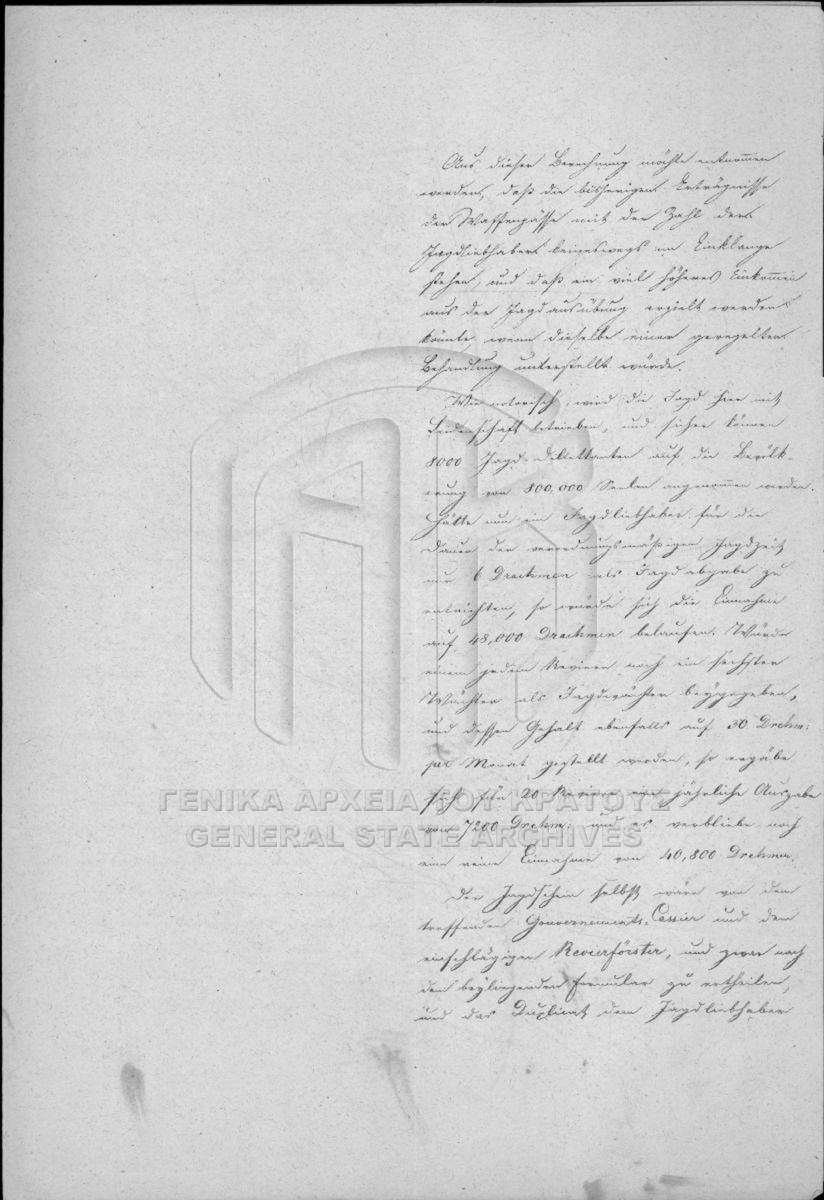 Aus dieser Berechnung möchte entnommen
werden, daß die bisherigen Erträgnisse
der Waffenpässe mit der Zahl der
Jagdliebhaber keineswegs im Einklange
stehen, und daß ein viel höheres Einkommen
aus der Jagdausübung erzielt werden
könnte, wenn dieselbe einer geregelten
Behandlung unterstellt würde.
Wie notorisch, wird die Jagd hier mit
Leidenschaft betrieben, und sicher können
8000 Jagd-Dilettanten auf die Bevölk-
erung von 800,000 Seelen angenommen werden.
Hätte nun ein Jagdliebhaber für die
Dauer der verordnungsmäßigen Jagdzeit
nur 6 Drachmen als Jagdabgabe zu
entrichten, so würde sich die Einnahme
auf 48,000 Drachmen belaufen. Würde
einem jedem Reviere noch ein sechster
Wächter als Jagdwächter beygegeben,
und dessen Gehalt ebenfalls auf 30 Drchm:
per Monat gestellt werden, so ergäbe
sich für 20 Reviere eine jährliche Ausgabe
von 7200 Drchm. und es verbliebe noch
eine reine Einnahme von 40,800 Drchmn.
Der Jagdschein selbst wäre von dem
treffenden Gouvernements-Cassier und dem
einschlägigen Revierförster, und zwar nach
dem beyliegenden Formular zu ertheilen,
und das Duplicat dem Jagdliebhaber
ΓΕΝΙΚΑ ΑΡΧΕΙΑ ΤΟΥ ΚΡΑΤΟΥΣ
GENERAL STATE ARCHIVES